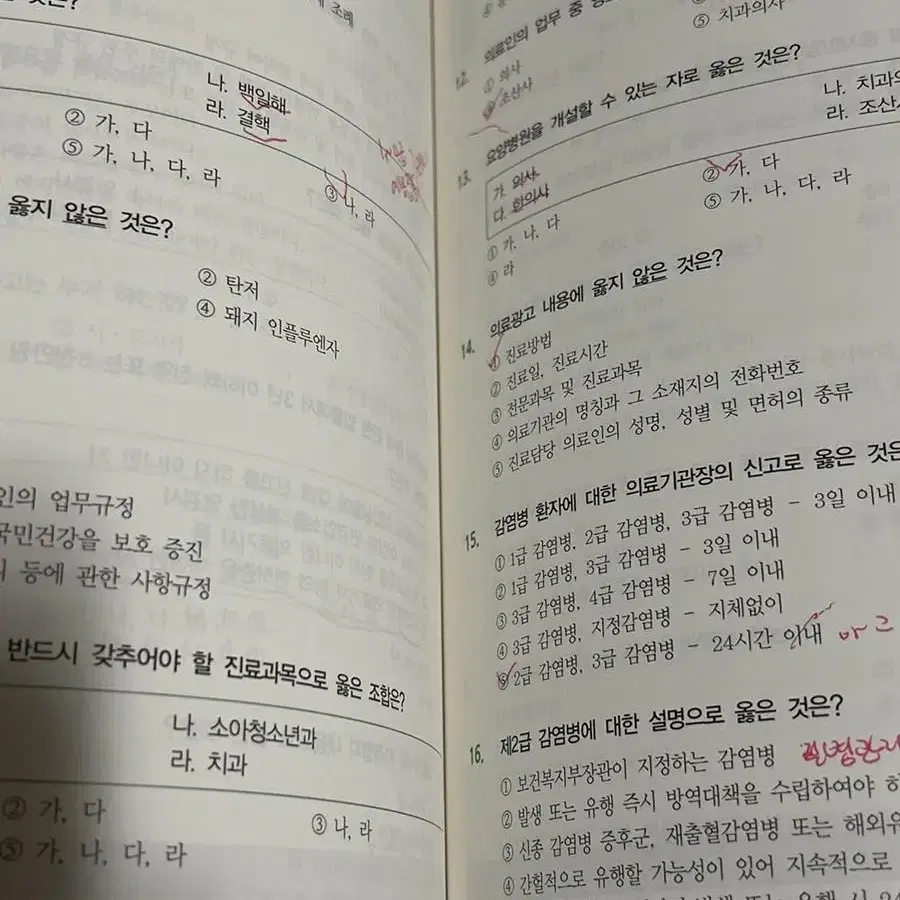 조례
나. 백일해
라. 결핵
② 가, 다
③ 나, 라
⑤ 가, 나, 다, 라
옳지 않은 것은?
② 탄저
④ 돼지 인플루엔자
인의 업무규정
국민건강을 보호 증진
등에 관한 사항규정
반드시 갖추어야 할 진료과목으로 옳은 조합은?
나. 소아청소년과
라. 치과
② 가, 다
③ 나, 라
⑤ 가, 나, 다, 라
의료인의 업무 중
⑤ 치과의사
12.
① 의사
조산사
13. 요양병원을 개설할 수 있는 자로 옳은 것은?
가. 의사
나. 치과의
다. 한의사
라. 조산
① 가, 나, 다
② 가, 다
④ 라
⑤ 가, 나, 다, 라
14. 의료광고 내용에 옳지 않은 것은?
① 진료방법
② 진료일, 진료시간
③ 전문과목 및 진료과목
④ 의료기관의 명칭과 그 소재지의 전화번호
⑤ 진료담당 의료인의 성명, 성별 및 면허의 종류
15. 감염병 환자에 대한 의료기관장의 신고로 옳은 것은
① 1급 감염병, 2급 감염병, 3급 감염병 - 3일 이내
② 1급 감염병, 3급 감염병 - 3일 이내
③ 3급 감염병, 4급 감염병 - 7일 이내
④ 3급 감염병, 지정감염병 - 지체없이
⑤ 2급 감염병, 3급 감염병 - 24시간 이내
16. 제2급 감염병에 대한 설명으로 옳은 것은?
① 보건복지부장관이 지정하는 감염병
② 발생 또는 유행 즉시 방역대책을 수립하여야 하
③ 신종 감염병 증후군, 재출혈감염병 또는 해외유
④ 간헐적으로 유행할 가능성이 있어 지속적으로